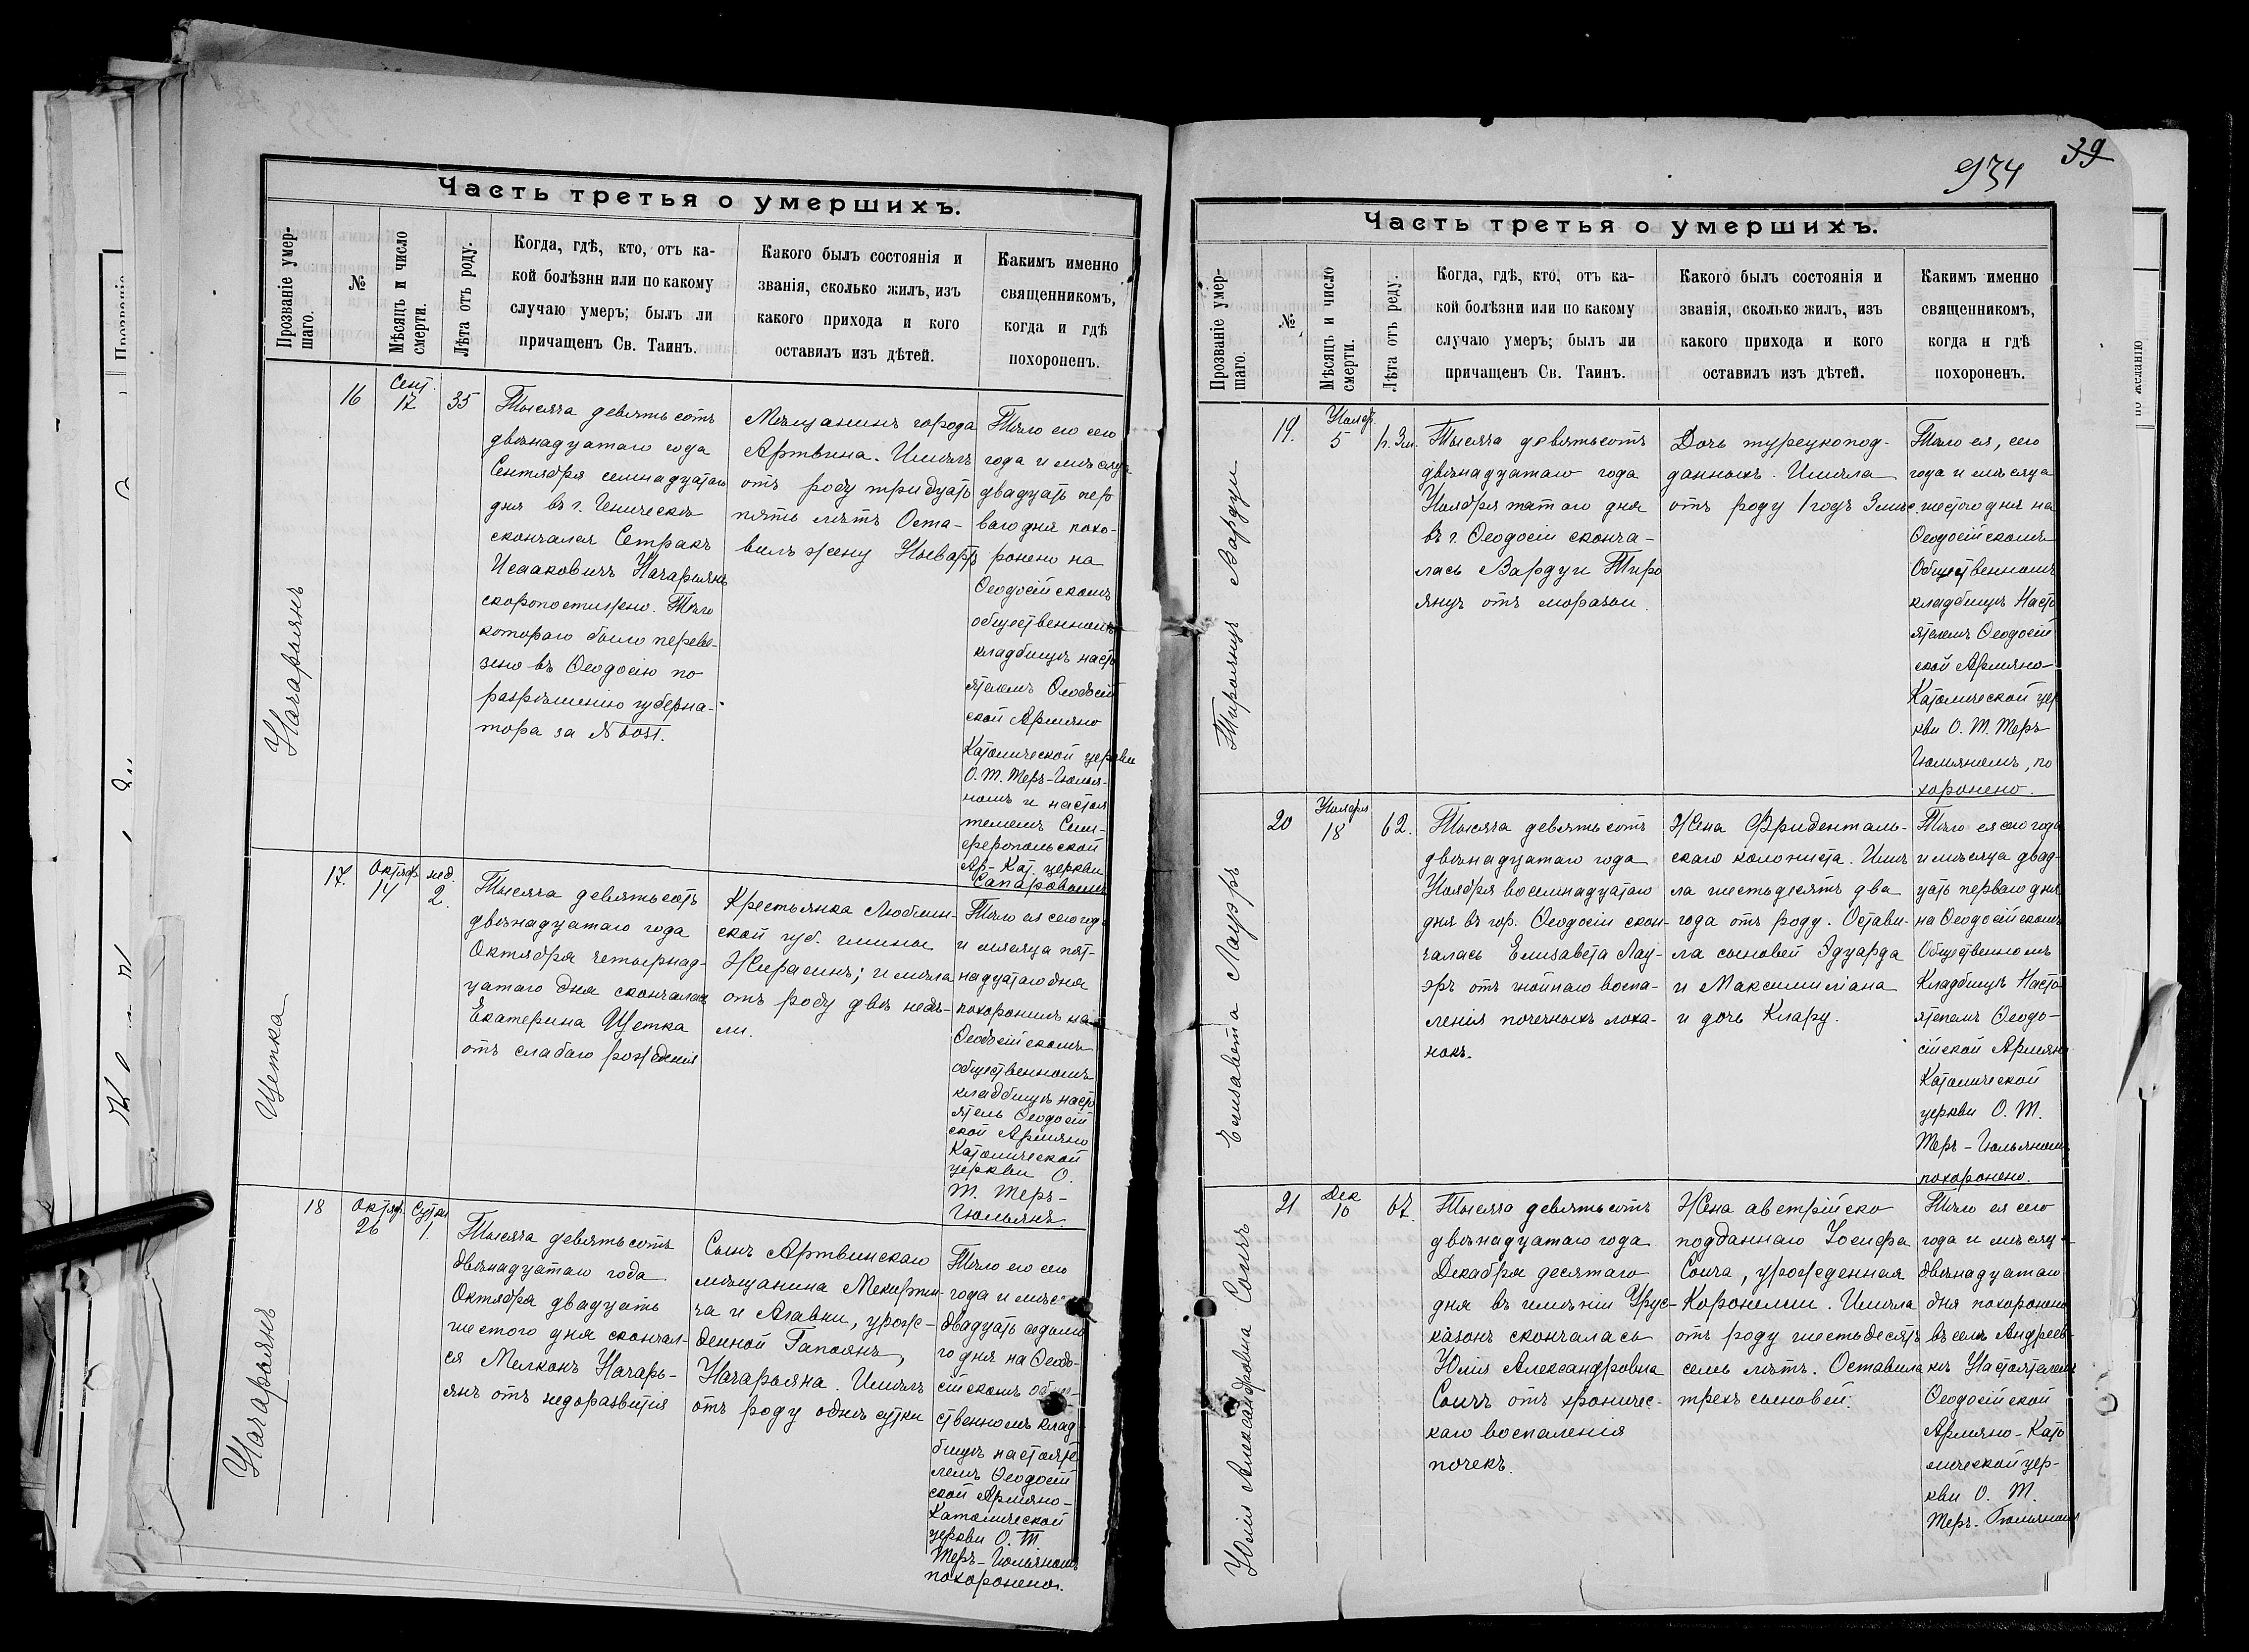 Часть третья о умершихъ.
Прозваніе умер-
шаго.
№
Мѣсяцъ и число
смерти.
Лѣта отъ роду.
Когда, гдѣ, кто, отъ ка-
кой болѣзни или по какому
случаю умеръ; былъ ли
причащенъ Св. Таинъ.
Какого былъ состоянія и
званія, сколько жилъ, изъ
какого прихода и кого
оставилъ изъ дѣтей.
Каким именно
священникомъ,
когда и гдѣ
похороненъ.
Начарьянъ
16
Сент.
17
35
Тысяча девятьсотъ
двѣнадцатаго года
Сентября семнадцатаго
дня въ г. Геническѣ
скончался Сетракъ
Исааковичъ Начарьянъ
скоропостижно. Тѣло
котораго было переве-
зено въ Ѳеодосію по
разрѣшенію губерна-
тора за №
Мѣщанинъ города
Артвина. Имѣлъ
отъ роду тридцать
пять лѣтъ Оста-
вилъ жену
Тѣло его сего
года и мѣсяца
двадцать пер
ваго дня похо-
ронено на
Ѳеодосійскомъ
общественномъ
кладбищѣ насто
ятелемъ Ѳеодосій
ской Армяно
Католической церкви
О. Т. Теръ-Гюлья-
номъ и настоя
телемъ Сим-
феропольской
Ар-Кат. церкви
Сапаровымъ
Щетка
17.
Октяб.
14
нед.
2.
Тысяча девятьсотъ
двѣнадцатаго года
Октября четырнад-
цатаго дня скончалась
Екатерина Щетка
отъ слабаго рожденія
Крестьянка Люблин-
ской губ. гмины
имѣла
отъ роду двѣ недѣ-
ли.
Тѣло ея сего год.
и мѣсяца пят-
надцатаго дня
похоронилъ на
Ѳеодосійскомъ
общественномъ
кладбищѣ насто
ятель Ѳеодосій
ской Армяно
Католической
церкви О.
Т. Теръ-
Гюльянъ.
Начарьянъ
18
Октяб.
26
Сутки
1
Тысяча девятьсотъ
двѣнадцатаго года
Октября двадцать
шестого дня скончал-
ся Мелконъ Начарь-
янъ отъ недоразвитія
Сынъ Артвинскаго
мѣщанина Мекирти-
ча и Агавни, урож-
денной Гапоянъ,
Начарьяна. Имѣлъ
отъ роду однѣ сутки
Тѣло его сего
года и мѣс
двадцать седьма
го дня на Ѳеодо-
сійскомъ обще-
ственномъ клад
бищѣ настояте
лемъ Ѳеодосій
ской Армяно-
Католической
церкви О. Т.
Теръ-Гюльяномъ
похоронено.
934
39
Часть третья о умершихъ.
Прозваніе умер-
шаго.
№
Мѣсяцъ и число
смерти.
Лѣта отъ роду.
Когда, гдѣ, кто, отъ ка-
кой болѣзни или по какому
случаю умеръ; былъ ли
причащенъ Св. Таинъ.
Какого былъ состоянія и
званія, сколько жилъ, изъ
какого прихода и кого
оставилъ изъ дѣтей.
Какимъ именно
священникомъ,
когда и гдѣ
похороненъ.
Тироянцъ Вардуи
19.
Нояб.
5
Тысяча девятьсотъ
двѣнадцатаго года
Ноября пятаго дня
въ г. Ѳеодосіи сконча-
лась Вардуи Тиро
янцъ отъ
Дочь турецкопод-
данныхъ. Имѣла
отъ роду 1 годъ 3 мѣс.
Тѣло ея, сего
года и мѣсяца
шестого дня на
Ѳеодосійскомъ
Общественномъ
кладбищѣ Насто
ятелемъ Ѳеодосій
ской Армяно-
Католической цер
кви О. Т. Теръ
Гюльяномъ, по
хоронено.
Елизавета Лауэръ
20
Ноября
18
62.
Тысяча девятьсотъ
двѣнадцатаго года
Ноября восемнадцатаго
дня въ гор. Ѳеодосіи скон-
чалась Елизавета Лау-
эръ отъ гнойнаго воспа-
ленія почечныхъ лоха-
нокъ.
Жена Фриденталь-
скаго колониста. Имѣ
ла шестьдесятъ два
года отъ роду. Остави-
ла сыновей Эдуарда
и Максимиліана
и дочь Клару.
Тѣло ея сего года
и мѣсяца двад-
цать перваго дня
на Ѳеодосійскомъ
Общественномъ
Кладбищѣ Насто-
ятелемъ Ѳеодо-
сійской Армяно
Католической
церкви О. Т.
Теръ-Гюльяномъ
похоронено.
Юлія Александровна Сончъ
21
Дек
10
67.
Тысяча девятьсотъ
двѣнадцатаго года
Декабря десятаго
дня въ имѣніи Урус-
казонъ скончалась
Юлія Александровна
Сончъ отъ хроничес-
каго воспаленія
почекъ.
Жена австрійско
подданнаго Іосифа
Сонча, урожденная
Коронелли. Имѣла
отъ роду шестьдесятъ
семь лѣтъ. Оставила
трехъ сыновей.
Тѣло ея сего
года и мѣсяц
двѣнадцатаго
дня похоронено
въ селѣ Андреев-
кѣ Настоятелемъ
Ѳеодосійской
Армяно-Като
лической цер-
кви О. Т.
Теръ-Гюльяномъ